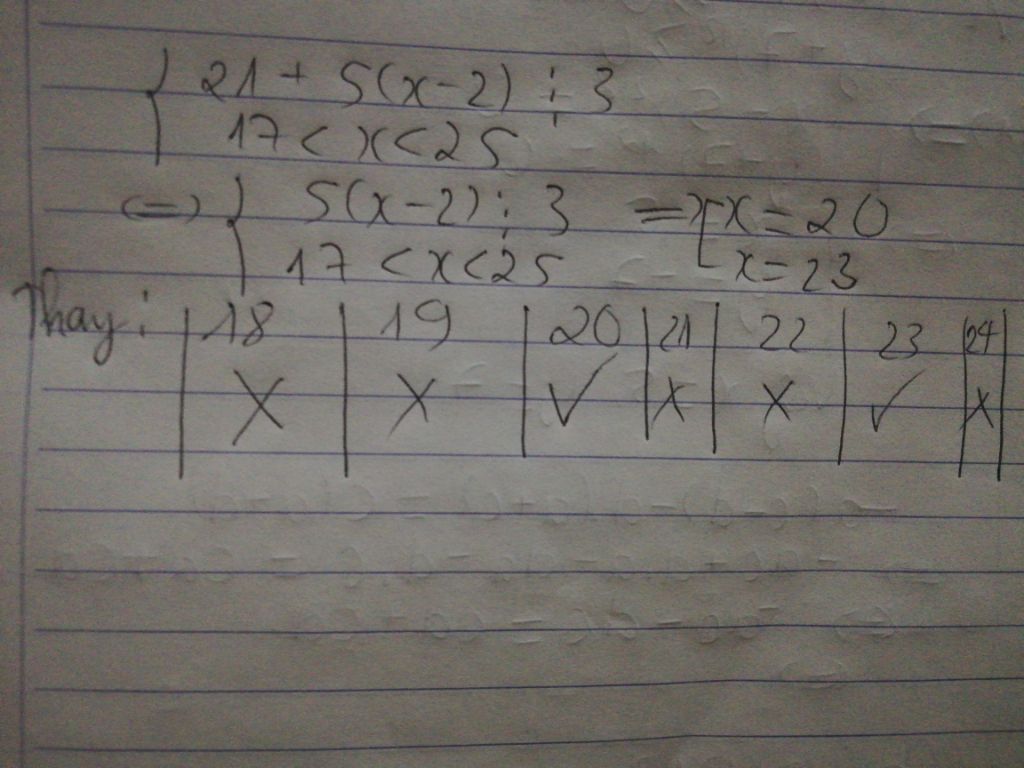 { 21 + 5(x-2) ⋮ 3
17 < x < 25
<=> { 5(x-2) ⋮ 3 => [ x = 20
17 < x < 25 x = 23
Thay: | 18 | 19 | 20 | 21 | 22 | 23 | 24 |
| X | X | ✓ | X | X | ✓ | X |